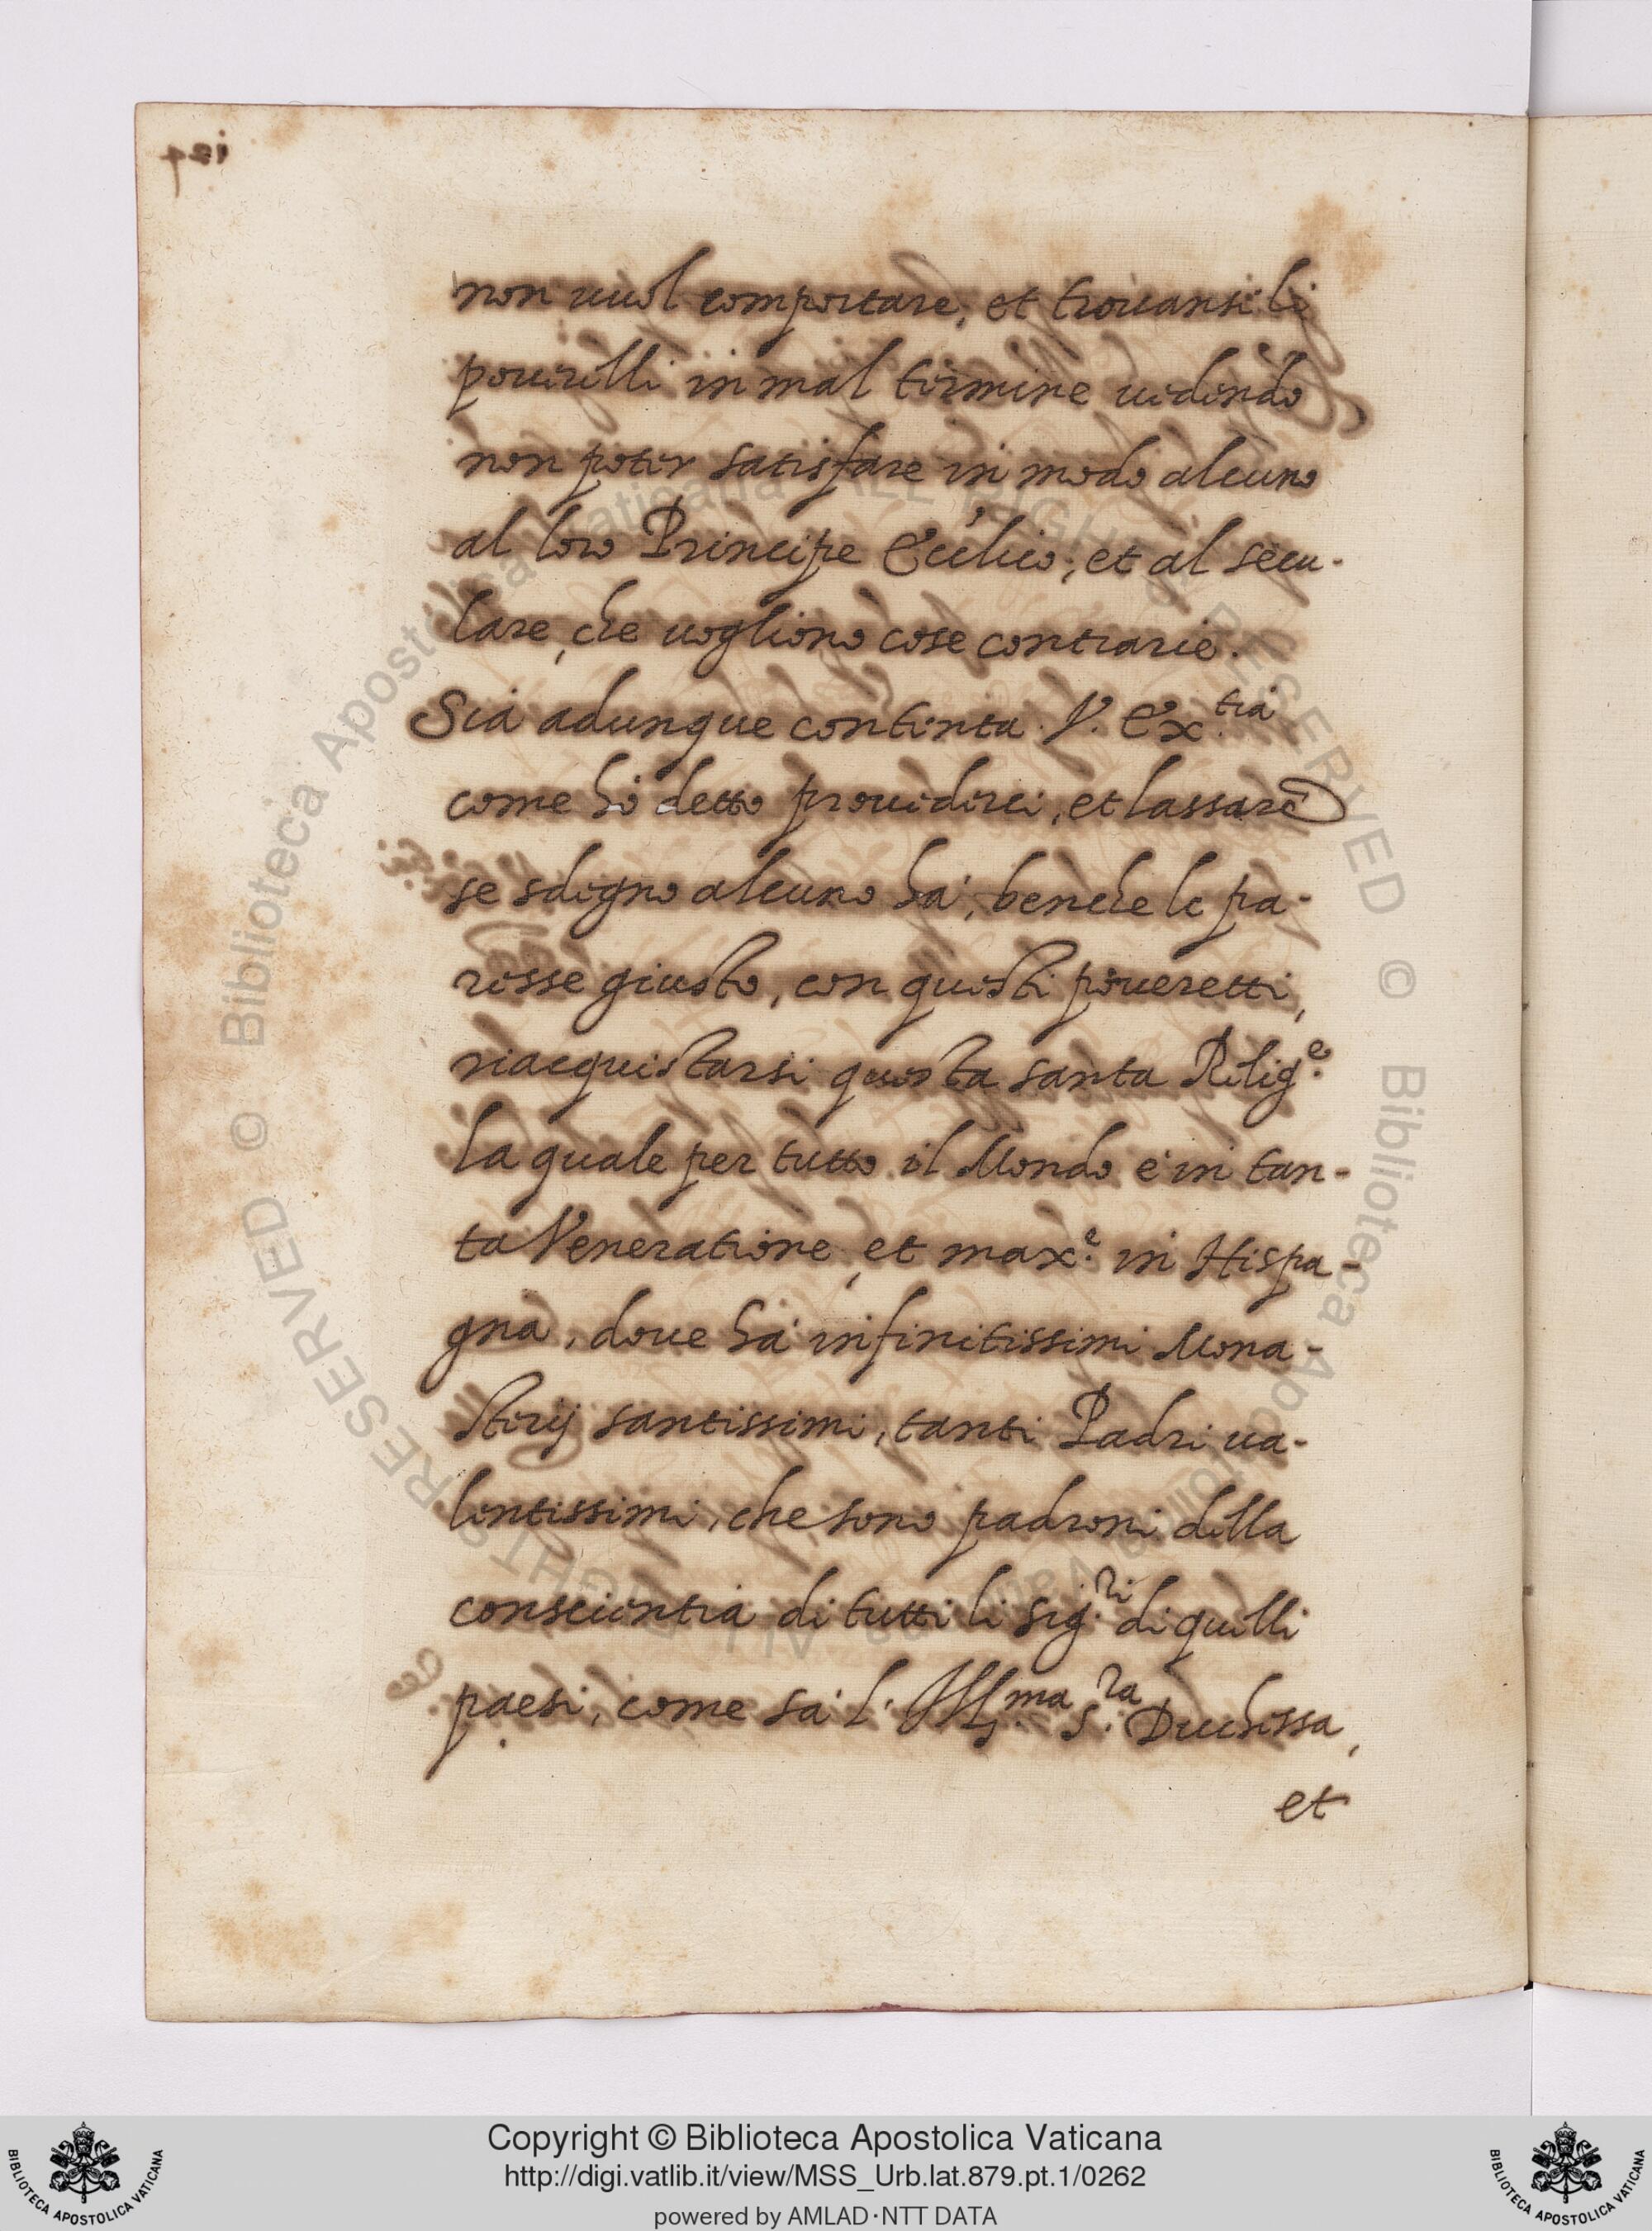 non uuol comportare, et trouansi li
pouerelli in mal termine uedendo
non poter satisfare in modo alcuno
al loro Principe Ecc.lico, et al secu-
lare, che uogliono cose contrarie.
Sia adunque contenta V. Ex.tia
come hò detto prouederci, et lassare
se sdegno alcuno hà, benche le pa-
resse giusto, con questi poueretti,
riacquistarsi questa santa Relig.e
la quale per tutto il Mondo è in tan-
ta Veneratione, et max.e in Hispa-
gna, doue hà infinitissimi Mona-
sterij santissimi, tanti Padri ua-
lentissimi, che sono padroni della
conscientia di tutti li Sig.ri di quelli
paesi, come sà l. Ill.ma S.ra Duchessa,
et
© Biblioteca Apostolica Vaticana ALL RIGHTS RESERVED
Copyright © Biblioteca Apostolica Vaticana
http://digi.vatlib.it/view/MSS_Urb.lat.879.pt.1/0262
powered by AMLAD·NTT DATA
BIBLIOTECA APOSTOLICA VATICANA
BIBLIOTECA APOSTOLICA VATICANA